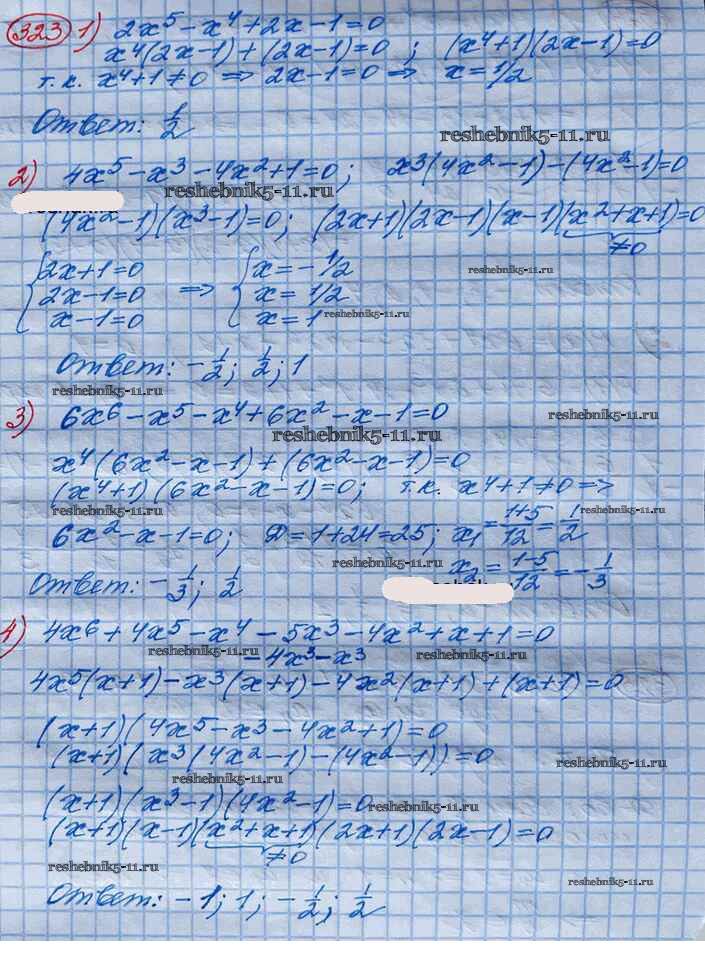 323 1) 2x⁵ - x⁴ + 2x - 1 = 0
x⁴(2x-1) + (2x-1) = 0 ; (x⁴+1)(2x-1) = 0
т.к. x⁴+1 ≠ 0 ⇒ 2x-1 = 0 ⇒ x = 1/2
Ответ: 1/2
reshebnik5-11.ru
2) 4x⁵ - x³ - 4x² + 1 = 0; x³(4x²-1) - (4x²-1) = 0
reshebnik5-11.ru
(4x²-1)(x³-1) = 0; (2x+1)(2x-1)(x-1)(x²+x+1) = 0
≠0
{2x+1=0 {x=-1/2
reshebnik5-11.ru
2x-1=0 ⇒ x=1/2
x-1=0 x=1
reshebnik5-11.ru
Ответ: -1/2; 1/2; 1
reshebnik5-11.ru
3) 6x⁶ - x⁵ - x⁴ + 6x² - x - 1 = 0
reshebnik5-11.ru
reshebnik5-11.ru
x⁴(6x²-x-1) + (6x²-x-1) = 0
(x⁴+1)(6x²-x-1) = 0; т.к. x⁴+1 ≠ 0 ⇒
reshebnik5-11.ru
reshebnik5-11.ru
6x²-x-1=0; D=1+24=25; x₁=(1+5)/12=1/2
reshebnik5-11.ru
x₂=(1-5)/12=-1/3
Ответ: -1/3; 1/2
4) 4x⁶ + 4x⁵ - x⁴ - 5x³ - 4x² + x + 1 = 0
reshebnik5-11.ru
-4x³-x³
reshebnik5-11.ru
4x⁵(x+1) - x³(x+1) - 4x²(x+1) + (x+1) = 0
(x+1)(4x⁵ - x³ - 4x² + 1) = 0
(x+1)(x³(4x²-1) - (4x²-1)) = 0
reshebnik5-11.ru
reshebnik5-11.ru
(x+1)(x³-1)(4x²-1) = 0
reshebnik5-11.ru
(x+1)(x-1)(x²+x+1)(2x+1)(2x-1) = 0
≠0
reshebnik5-11.ru
reshebnik5-11.ru
Ответ: -1; 1; -1/2; 1/2